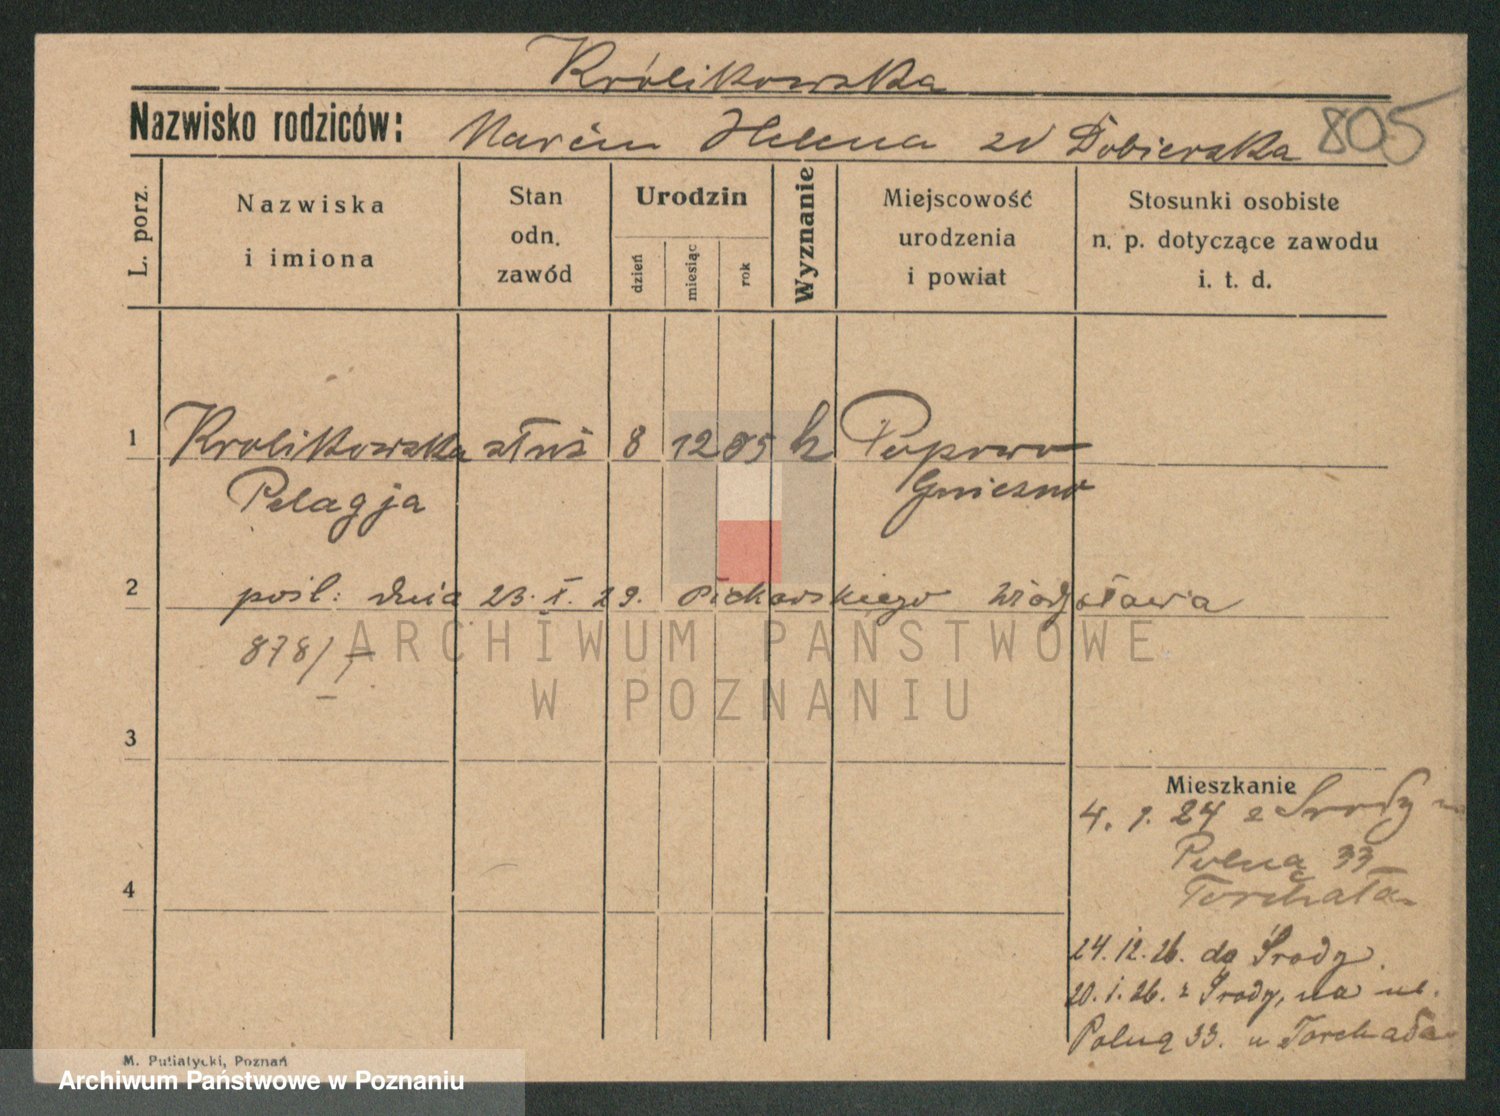 Królikowska
Nazwisko rodziców: Marcin Helena zd Dobierska 805
L. porz.
Nazwiska
i imiona
Stan
odn.
zawód
Urodzin
dzień
miesiąc
rok
Wyznanie
Miejscowość
urodzenia
i powiat
Stosunki osobiste
n. p. dotyczące zawodu
i. t. d.
1 Krolikowska służ 8 12 05 k Popowo
Pelagja Gniezno
2 pośl: dnia 23. X. 29. Piekarskiego Władysława
878/
3
Mieszkanie
4. 1. 24 z Środy
Polną 33
Torchała
4
24. 12. 26. do Środy.
20. 1. 26. z Środy, na ul.
Polną 33. u Torchała
ARCHIWUM PAŃSTWOWE
W POZNANIU
M. Putiatycki, Poznań
Archiwum Państwowe w Poznaniu